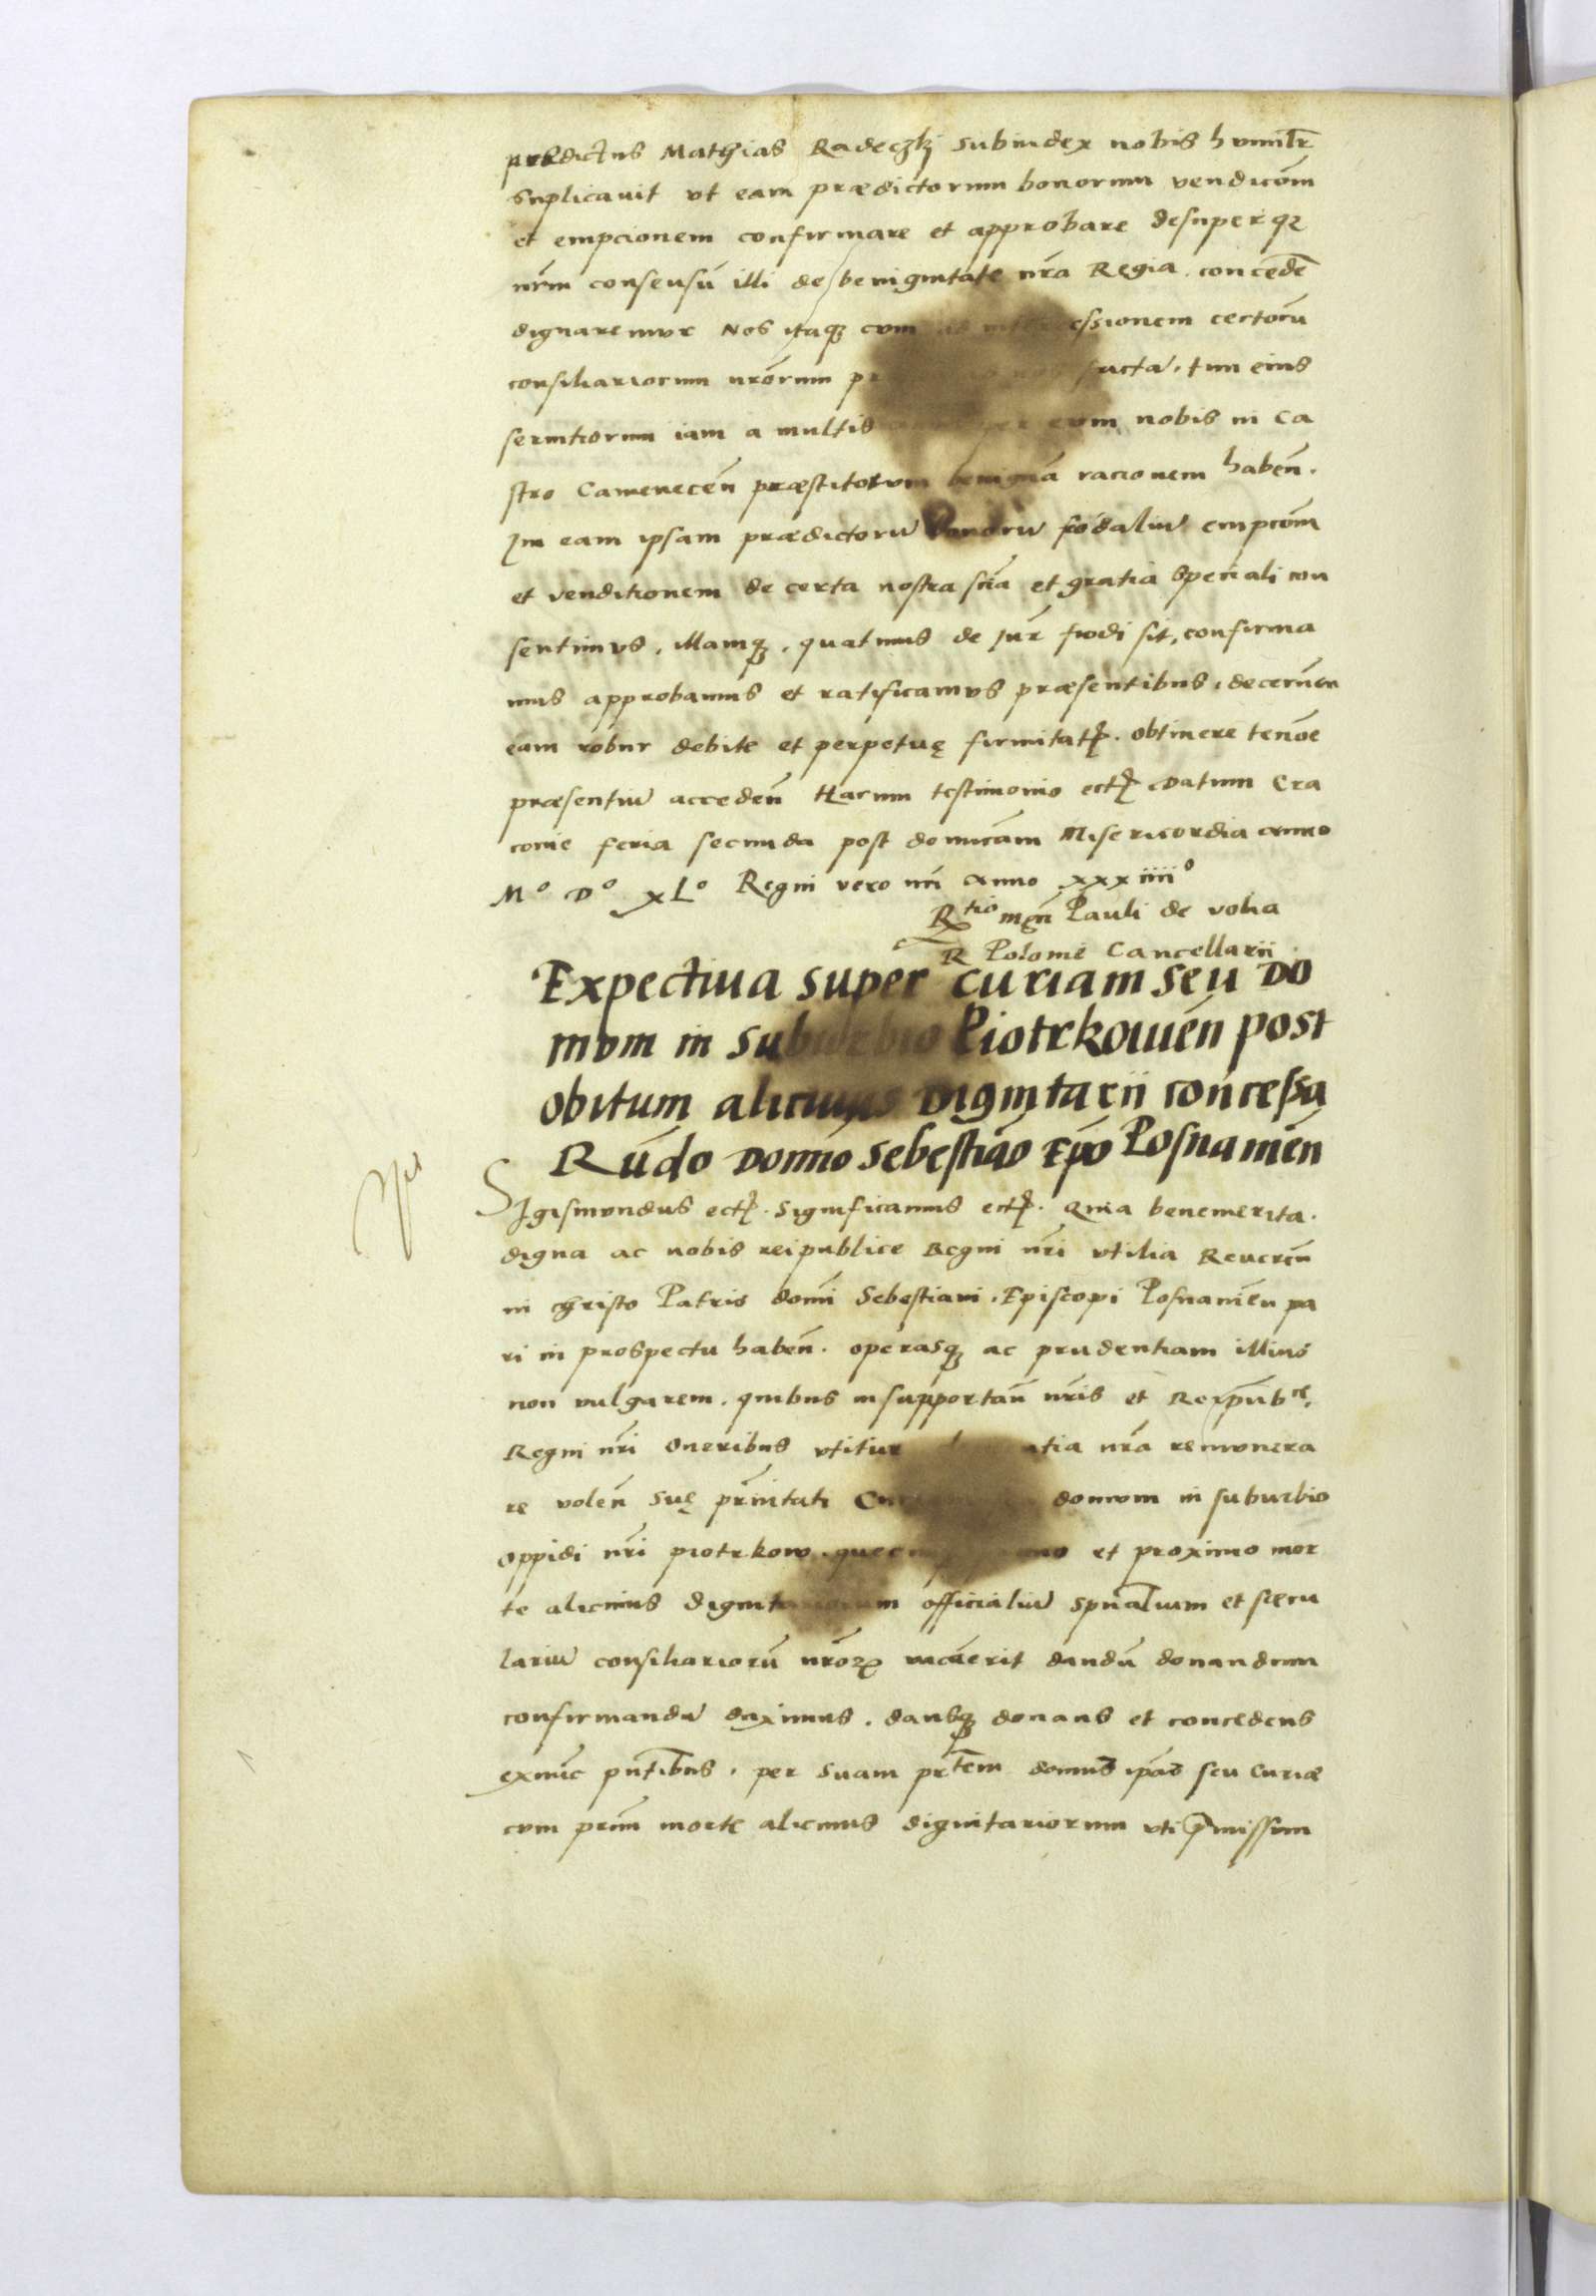 prędictus Mathias Radeczkj Subiudex nobis humilr̃
suplicauit vt eam prædictorum bonorum vendicõm
et empcionem confirmare et approbare desuper qȝ
nr̃m consensũ illi de benignitate nr̃a Regia concedẽ
dignaremur Nos itaqȝ cum ad intercessionem certorũ
consiliariorum nr̃orum factã, tum eius
seruitiorum iam a multis per eum nobis in Ca
stro Camenecẽn præstitorum benignã racionem habeñ.
Jn eam ipsam prædictorũ bonorũ fodaliũ empcõm
et venditionem de certa nostra sciã et gratia speciali con
sentimus, illamqȝ, quatinus de Jur̃ feodi sit, confirma
mus approbamus et ratificamus præsentibus, decernẽn
eam robur debite et perpetuę firmitatꝭ. obtinere tenõe
præsentiũ accedeñ Harum testimonio ectꝭ Datum Cra
couie feria secunda post domicãm Misericordia anno
Mº Dº xLº Regni vero nr̃i anno xxxiiiiº
Rtio mgñ Pauli de volia
R Polonie Cancellarii
Expectiua super curiam seu Do
mum in suburbio Piotrkouien̄ post
obitum alicuius Dignitarii concessa
Rũdo Domno Sebestião Epõ Posnamẽn
SJgismundus ectꝭ. Significamus ectꝭ. Quia benemerita.
digna ac nobis reipublice Regni nr̃i vtilia Reuerẽn
in christo Patris domi Sebestiani. Episcopi Posnamẽn pa
ri in prospectu habeñ. operasqȝ ac prudentiam illius
non vulgarem. quibus in supportañ nr̃is et Reipub̃ce,
Regni nr̃i oneribus vtitur gratia nr̃a remunera
re voleñ Suę pr̃nitati Curiam domum in suburbio
oppidi nr̃i piotrkow. et proximo mor
te alicuius dignitariorum officialiũ spũalium et sęcu
lariũ consiliariorũ nr̃oꝝ vacauerit dandũ donandum
confirmandũ duximus. dansqȝ donans et concedens
exnũc pñtibus. per suam pr̃tem domus ip̃as seu Curiæ
cum prim̃ morte alicuius dignitariorum vti p̃missum